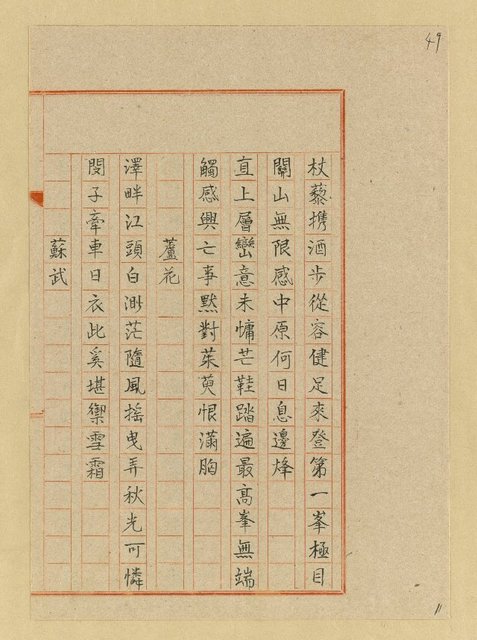 49
杖藜携酒步從容健足來登第一峯極目
關山無限感中原何日息邊烽
直上層巒意未慵芒鞋踏遍最高峯無端
觸感興亡事默對茱萸恨滿胸
蘆花
澤畔江頭白渺茫隨風摇曳弄秋光可憐
閔子牽車日衣此奚堪禦雪霜
蘇武
11